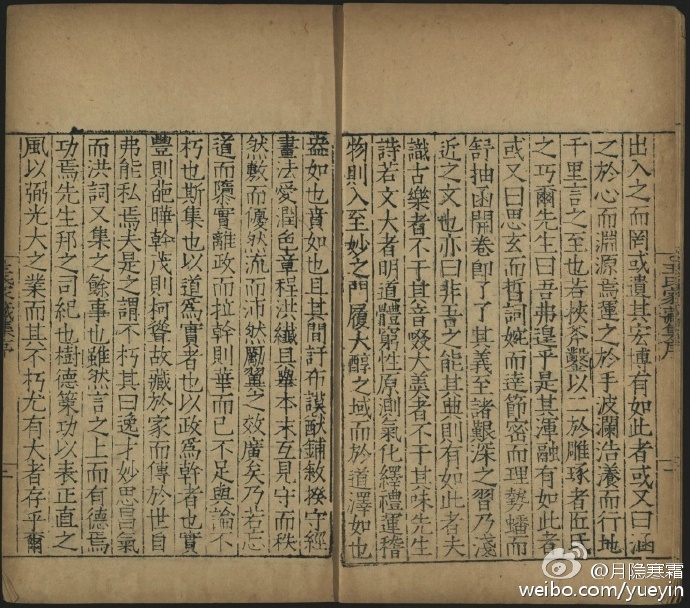 出入之而罔或遺其宏博有如此者或又曰涵
之於心而淵源焉運之於手波瀾浩瀁而行地
千里言之至也若挾斧鑿以二於雕琢者匠氏
之巧爾先生曰吾弗皇乎是其渾融有如此者
或又曰思玄而哲詞婉而達節密而理勢蟠而
舒抽函開卷即了了其義至諸艱深之習乃淺
近之文也亦曰非吾之能其典則有如此者夫
識古樂者不干其音啜大羹者不干其味先生
詩若文大者明道體窮性原測氣化繹禮運稽
物則入至妙之門履大醇之域而於道澤如也
盎如也賁如也且其間訏布謨猷鋪敘揆守經
畫法愛潤色章程洪纖具舉本末互見守而秩
然數而優然流而沛然勵翼之效廣矣乃若忘
道而隳實離政而拉幹則華而已不足與論不
朽也斯集也以道為實者也以政為幹者也實
豐則葩曄幹茂則柯聳故藏於家而傳於世自
弗能私焉夫是之謂不朽其曰逸才妙思昌氣
而洪詞又集之餘事也雖然言之上而有德焉
功焉先生邦之司紀也樹德築功以表正直之
風以弼光大之業而其不朽尤有大者存乎爾
王氏家藏集序
@月隐寒霜
weibo.com/yueyin